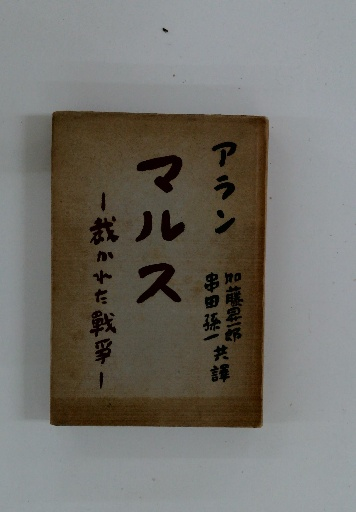 アラン
マルス
―裁かれた戰爭―
加藤昇一郎
串田孫一 共譯